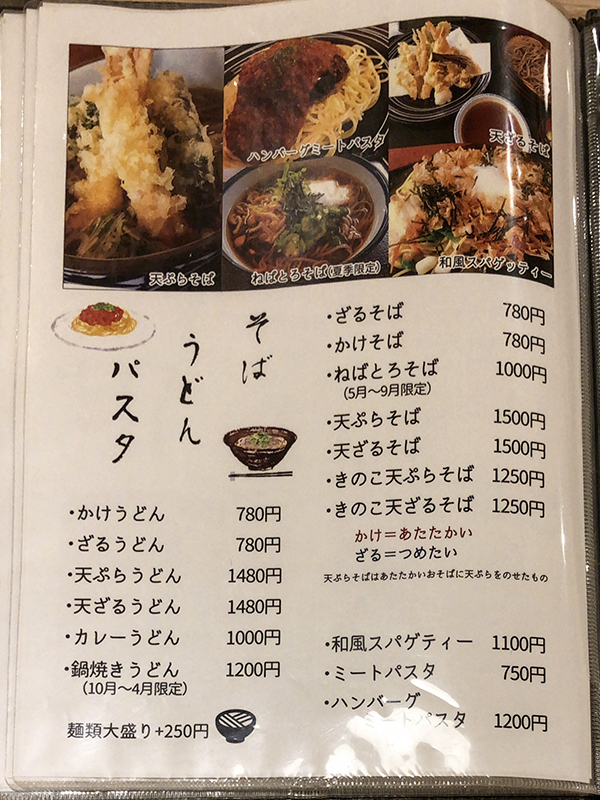 ハンバーグミートパスタ
天ざるそば
天ぷらそば
ねばとろそば(夏季限定)
和風スパゲッティー
そば
うどん
パスタ
・ざるそば 780円
・かけそば 780円
・ねばとろそば 1000円
(5月～9月限定)
・天ぷらそば 1500円
・天ざるそば 1500円
・きのこ天ぷらそば 1250円
・きのこ天ざるそば 1250円
かけ＝あたたかい
ざる＝つめたい
天ぷらそばはあたたかいおそばに天ぷらをのせたもの
・かけうどん 780円
・ざるうどん 780円
・天ぷらうどん 1480円
・天ざるうどん 1480円
・カレーうどん 1000円
・鍋焼きうどん 1200円
(10月～4月限定)
麺類大盛り+250円
・和風スパゲティー 1100円
・ミートパスタ 750円
・ハンバーグ
ミートパスタ 1200円